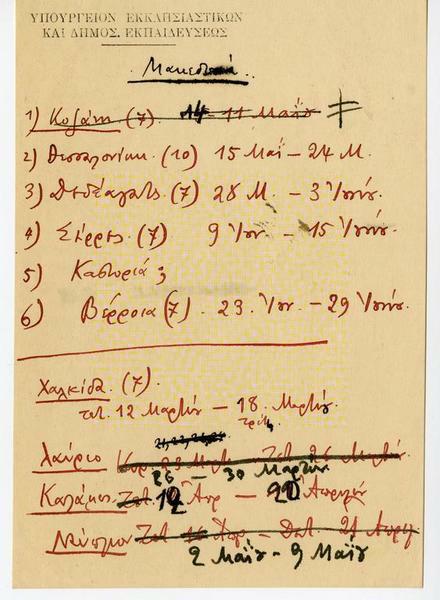 ΥΠΟΥΡΓΕΙΟΝ ΕΚΚΛΗΣΙΑΣΤΙΚΩΝ
ΚΑΙ ΔΗΜΟΣ. ΕΚΠΑΙΔΕΥΣΕΩΣ
Μακεδονιά
1) Κοζάνη (7) 14 - 11 Μαΐου
2) Θεσσαλονίκη. (10) 15 Μαΐ – 24 Μ.
3) Δεδέαγατς. (7) 28 Μ. – 3 Ἰουν.
4) Σέρρες (7) 9 Ἰουν. – 15 Ἰουν.
5) Καστοριά ;
6) Βέρροια (7). 23. Ἰουν. – 29 Ἰουν.
Χαλκίδα. (7).
12 Μαρτίου – 18. Μαρτίου.
Τρίτη
Λαύριο Κυρ. 23 Μαρτ.
26 – 30 Μαρτίου
Καλάμαι 12 Ἀπρ – 21 Ἀπριλίου
Ἀπρ –
2 Μαΐου – 9 Μαΐου